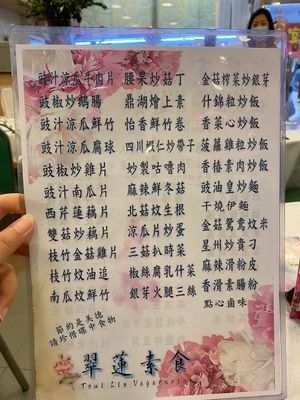 豉汁涼瓜牛肉片
豉椒炒鵝腸
豉汁涼瓜鮮竹
豉汁涼瓜腐球
豉椒炒雞片
豉汁南瓜片
西芹蓮藕片
雙菇炒藕片
枝竹金菇雞片
枝竹炆油追
南瓜炆鮮竹
腰果炒菇丁
鼎湖燴上素
怡香鮮竹卷
四川蝦仁炒帶子
妙製咕嚕肉
麻辣鮮冬菇
北菇炆生根
涼瓜片炒蛋
三菇扒時菜
椒絲腐乳什菜
銀芽火腿三絲
金菇榨菜炒銀芽
什錦鍋粒炒飯
香菜心炒飯
菠蘿雞粒炒飯
香椿素肉炒飯
豉油皇炒麵
干燒伊麵
金菇鴛鴦炆米
星州炒貴刁
麻辣滑粉皮
香滑素腸粉
點心鹵味
節約是美德
請珍惜碟中食物
翠蓮素食
( Tsui Lin Vegetarian